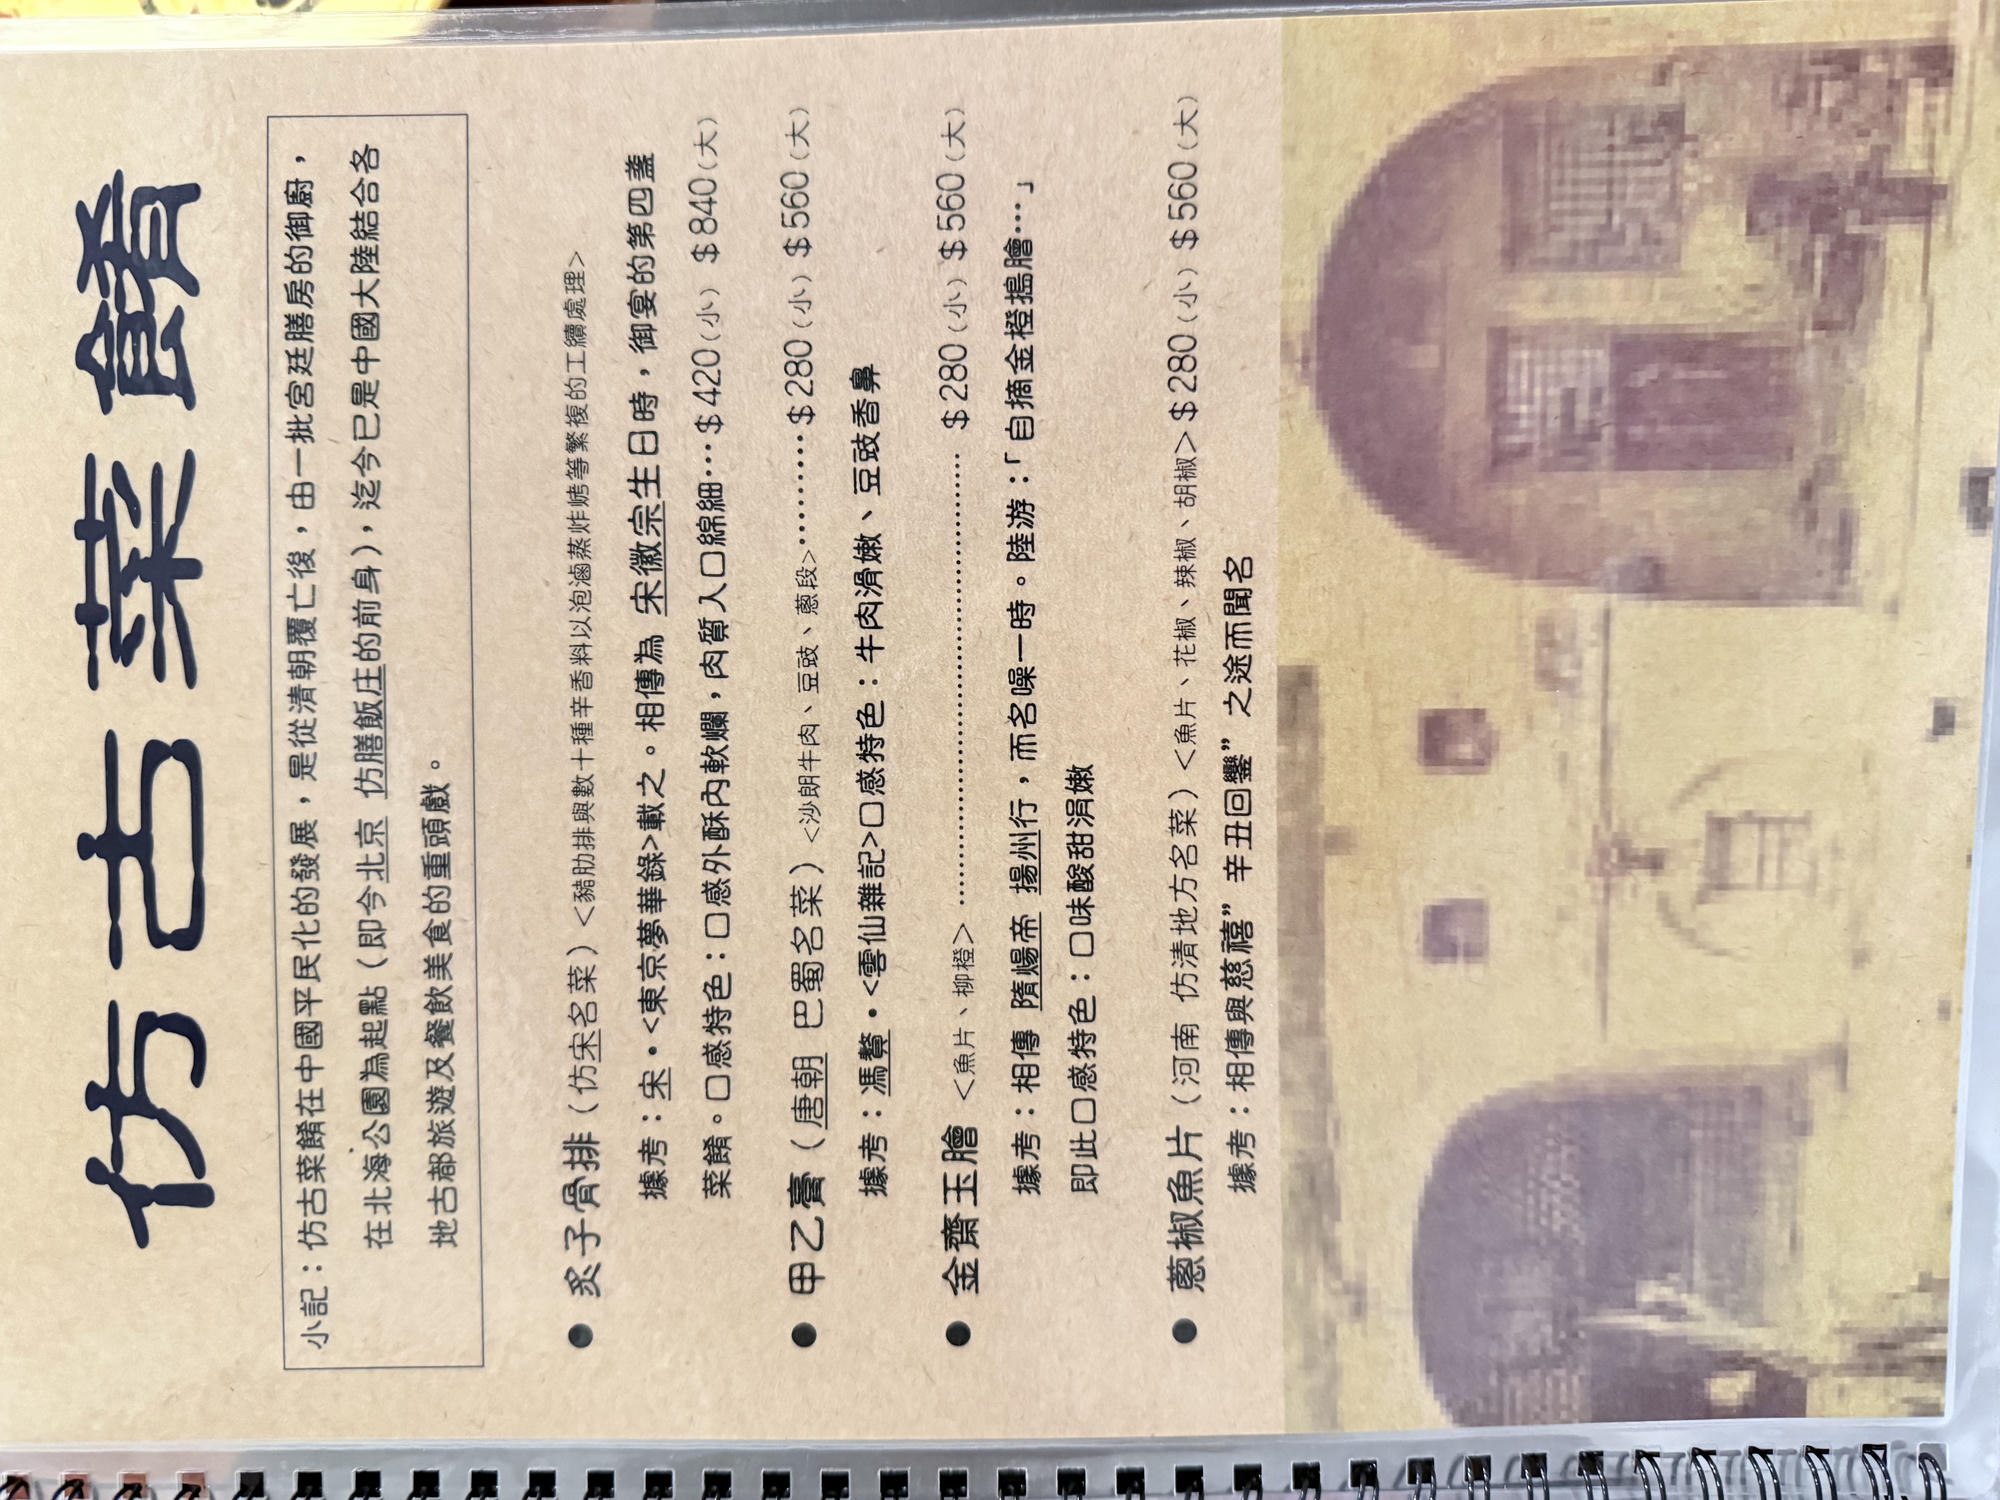 仿古菜餚
小記：仿古菜餚在中國平民化的發展，是從清朝覆亡後，由一批宮廷膳房的御廚，
在北海公園為起點（即今北京 仿膳飯庄的前身），迄今已是中國大陸結合各
地古都旅遊及餐飲美食的重頭戲。
● 炙子骨排（仿宋名菜）<豬肋排與數十種辛香料以泡滷蒸炸烤等繁複的工續處理>
據考：宋·<東京夢華錄>載之。相傳為 宋徽宗生日時，御宴的第四盞
菜餚。口感特色：口感外酥內軟爛，肉質入口綿細…$420(小) $840(大)
● 甲乙膏（唐朝 巴蜀名菜）<沙朗牛肉、豆豉、蔥段>………$280(小) $560(大)
據考：馮贄·<雲仙雜記>口感特色：牛肉滑嫩、豆豉香鼻
● 金齋玉膾 <魚片、柳橙> …………………………………… $280(小) $560(大)
據考：相傳 隋煬帝 揚州行，而名噪一時。陸游：「自摘金橙搗膾…」
即此口感特色：口味酸甜涓嫩
● 蔥椒魚片（河南 仿清地方名菜）<魚片、花椒、辣椒、胡椒>$280(小) $560(大)
據考：相傳與慈禧”辛丑回鑾”之途而聞名